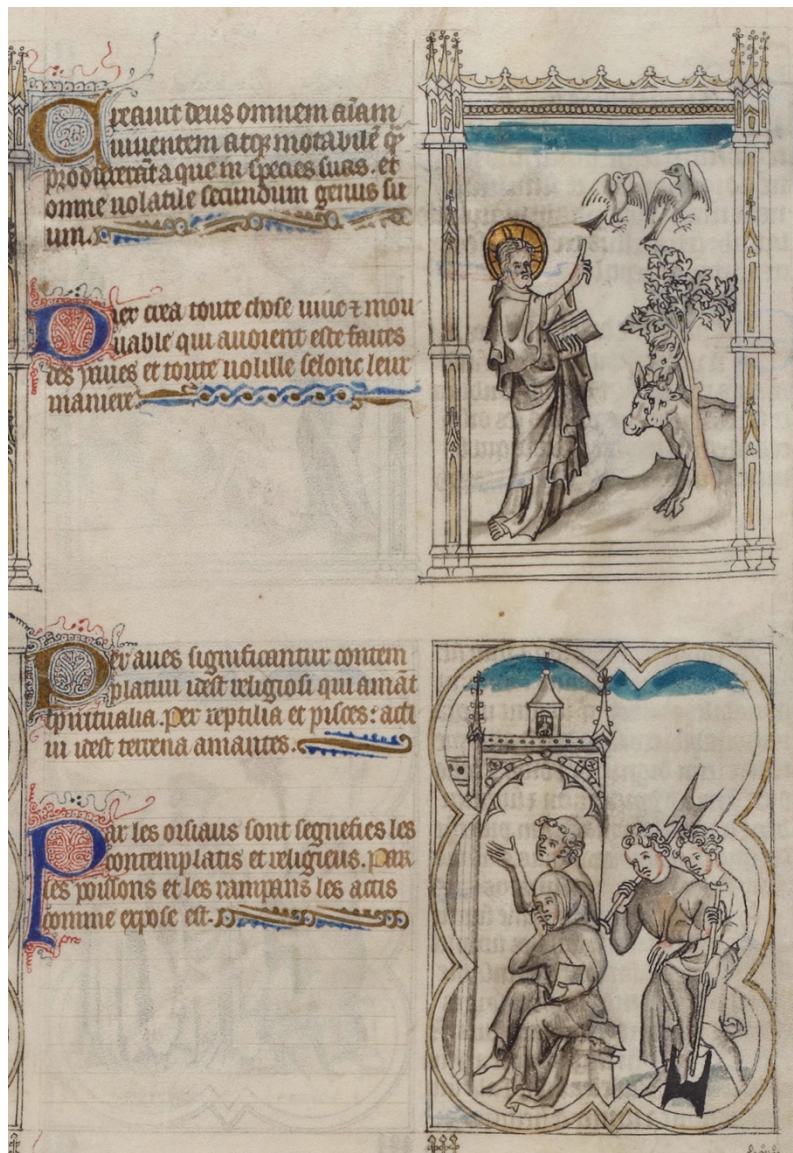 Creauit deus omnem aīam
uiuentem atq; motabilē q̄
produxerāt aque in species suas. et
omne uolatile secundum genus su
um.
Diex crea toute chose uiue ⁊ mou
uable qui auoient este faites
des yaues et toute uolille selonc leur
maniere.
Per aues significantur contem
platiui idest religiosi qui amāt
spiritualia. Per reptilia et pisces: acti
ui idest terrena amantes.
Par les oisiaus sont segnefies les
contemplatis et religieus. Par
les poissons et les rampans les actis
comme expose est.